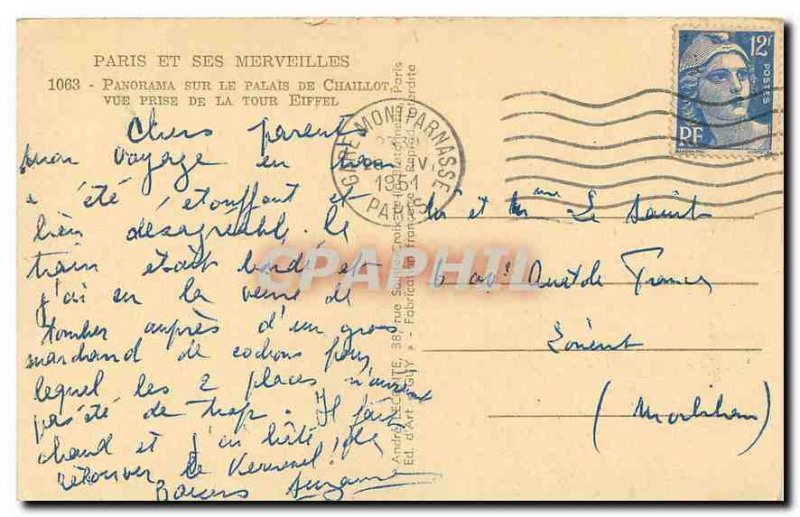 PARIS ET SES MERVEILLES
1063 - PANORAMA SUR LE PALAIS DE CHAILLOT,
VUE PRISE DE LA TOUR EIFFEL
Chers parents
mon voyage en train
a été étouffant et
bien désagréable. le
train était bondé et
j'ai eu la veine de
tomber auprès d'un gros
marchand de cochons pour
lequel les 2 places n'auraient
pas été de trop. Il fait
chaud et j'ai hâte de
retrouver le
Baisers Suzanne
André LECONTE, 38, rue Sainte-Croix-de-la-Bretonnerie, Paris
Ed. d'Art "GUY" - Fabrication Française - Reprod. interdite
GARE MONTPARNASSE
1951
PARIS
12F
POSTES
RF
Mr et Mme Le Saint
6 Anat de France
Lorient
(Morbihan)
CPAPHIL